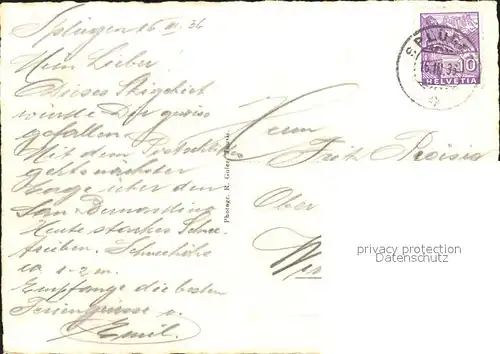 Splügen 16 III. 34
Mein Lieber!
Dieses Skigebiet
würde Dir gewiss
gefallen.
Mit dem Postschlitten
gehts nächster
Tage über den
San Bernardino
Heute starkes Schnee-
treiben. Schneehöhe
ca 1-2 m.
Empfange die besten
Feriengrüsse v.
Emil.
Photogr. R. Guler, Thusis.
Herrn
Fritz
Ober
SPLÜGEN
10
HELVETIA
privacy protection
Datenschutz